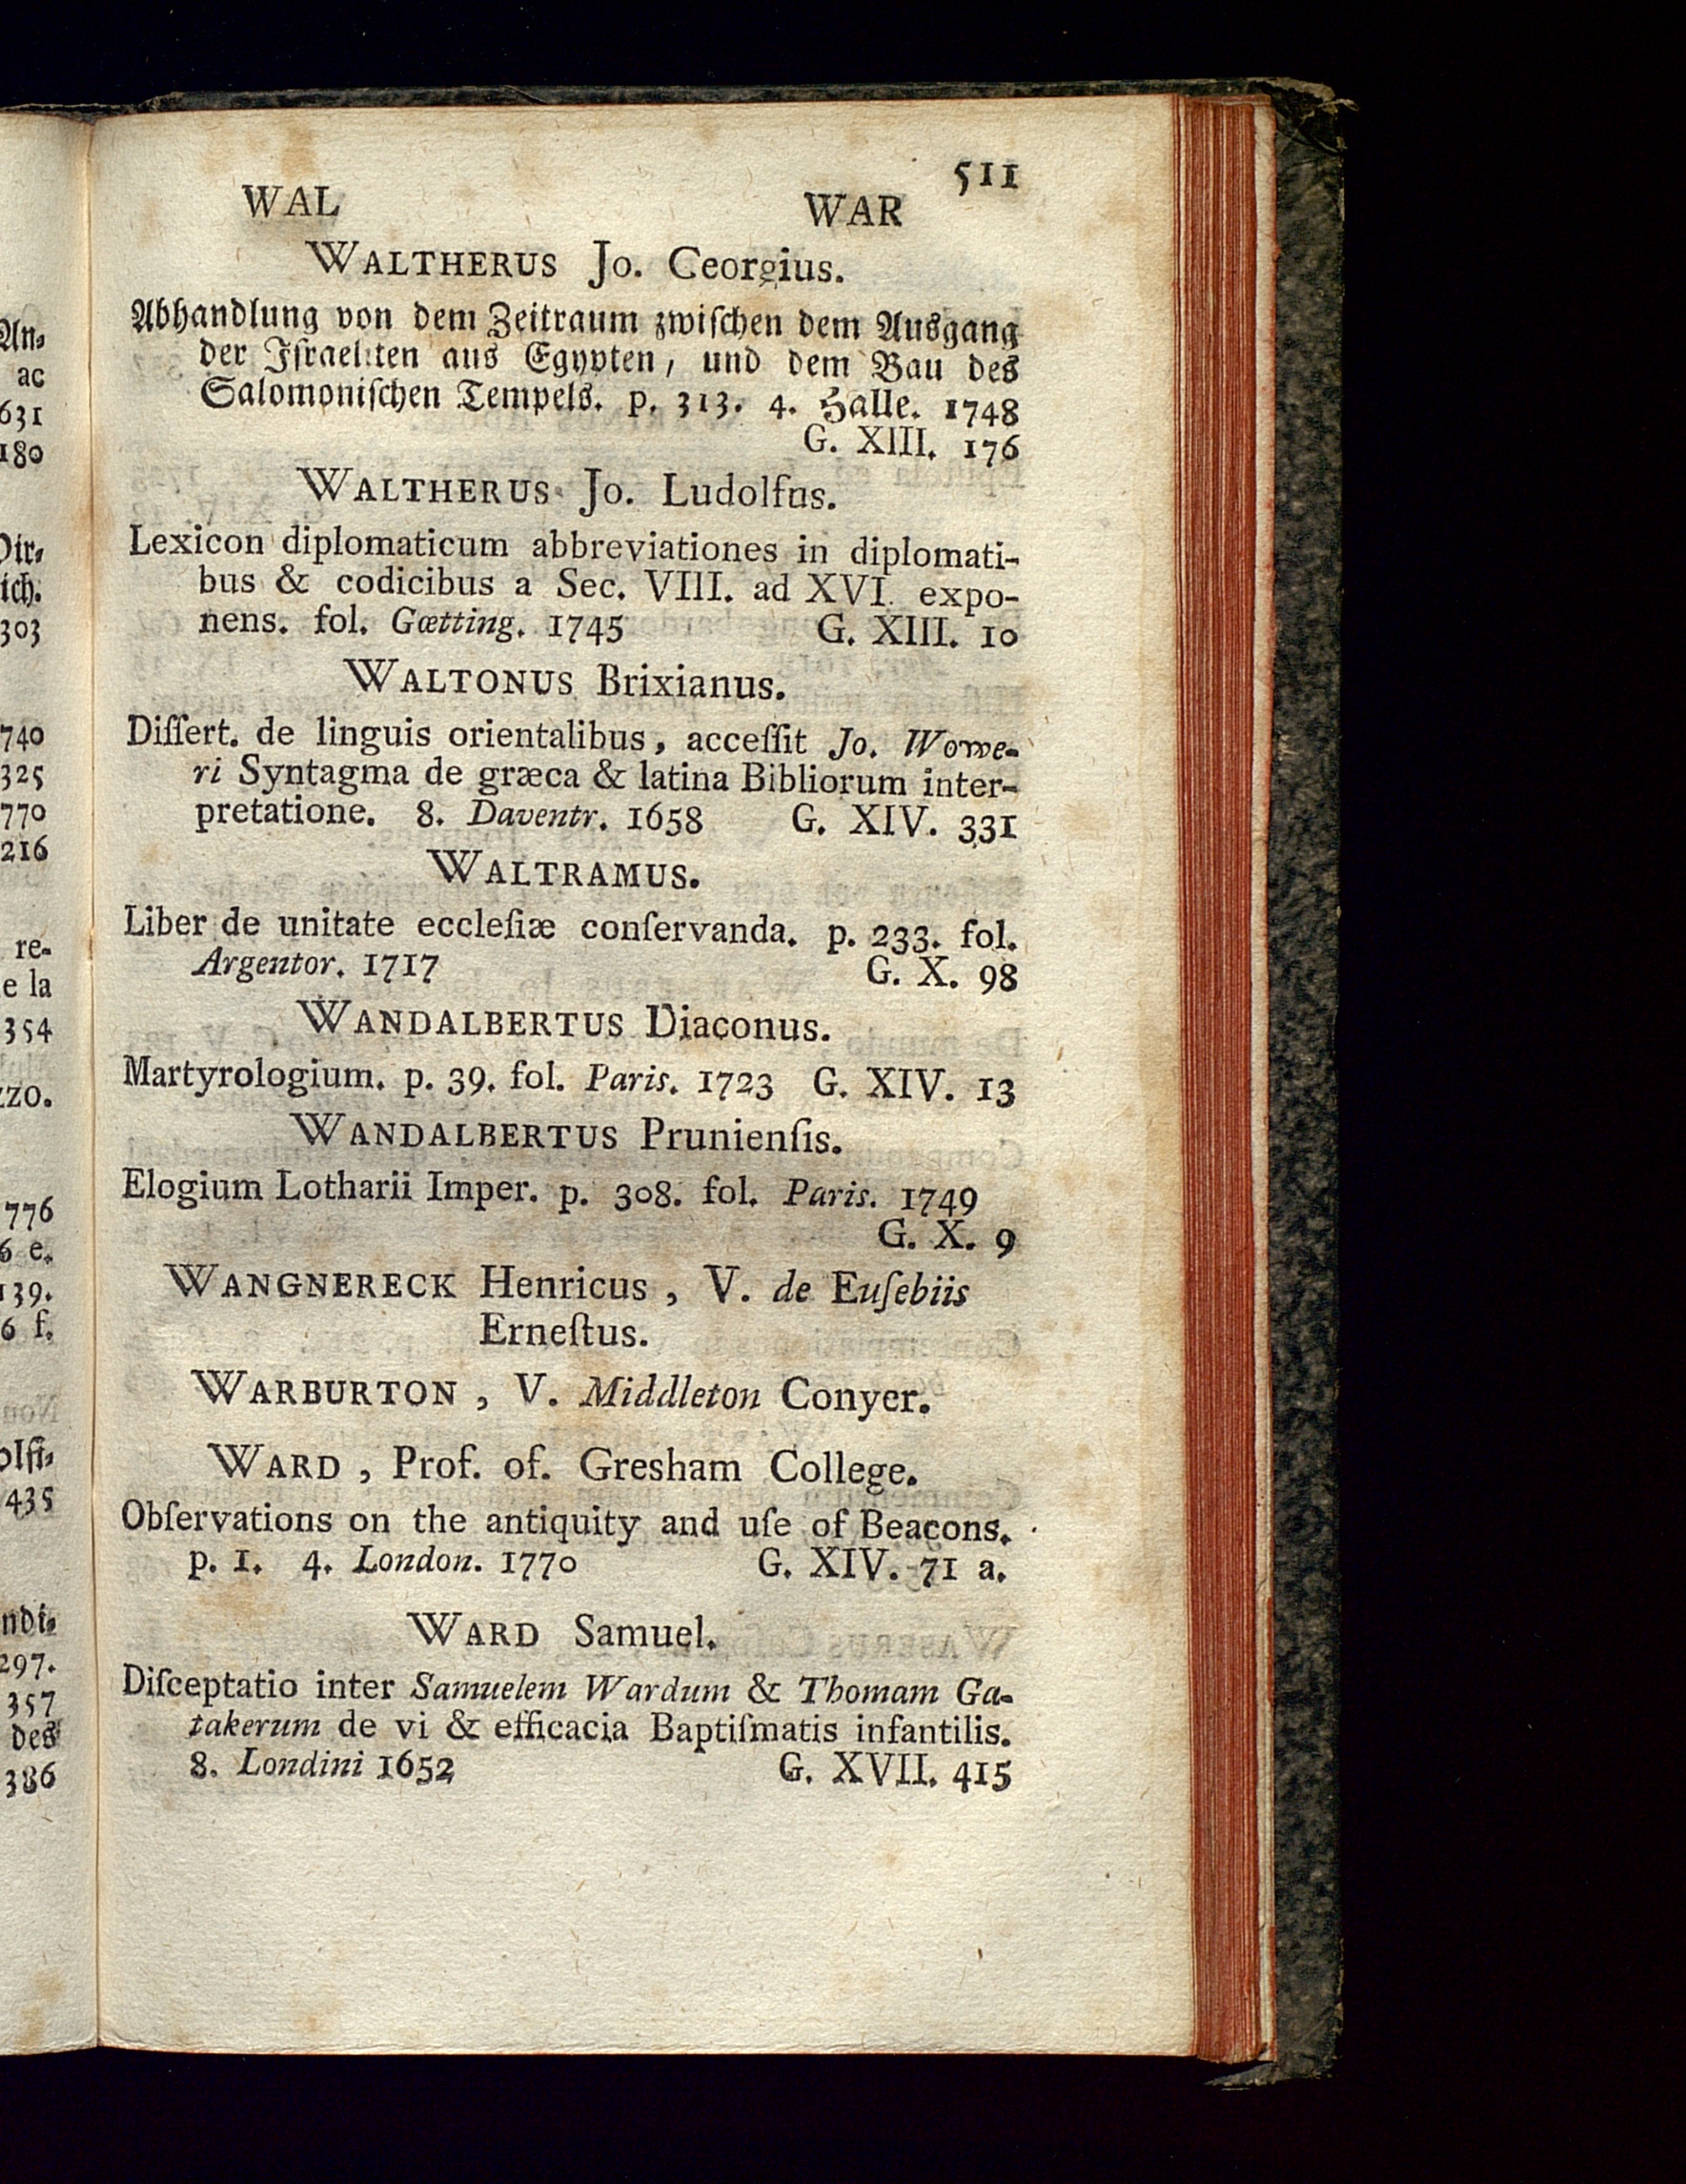 511
WAL WAR
WALTHERUS Jo. Ceorgius.
Abhandlung von dem Zeitraum zwiſchen dem Ausgang
der Iſraeliten aus Egypten, und dem Bau des
Salomoniſchen Tempels. p. 313. 4. Halle. 1748
G. XIII. 176
WALTHERUS Jo. Ludolfus.
Lexicon diplomaticum abbreviationes in diplomati-
bus & codicibus a Sec. VIII. ad XVI. expo-
nens. fol. Gœtting. 1745 G. XIII. 10
WALTONUS Brixianus.
Diſſert. de linguis orientalibus, acceſſit Jo. Wowe-
ri Syntagma de græca & latina Bibliorum inter-
pretatione. 8. Daventr. 1658 G. XIV. 331
WALTRAMUS.
Liber de unitate eccleſiæ conſervanda. p. 233. fol.
Argentor. 1717 G. X. 98
WANDALBERTUS Diaconus.
Martyrologium. p. 39. fol. Paris. 1723 G. XIV. 13
WANDALBERTUS Prunienſis.
Elogium Lotharii Imper. p. 308. fol. Paris. 1749
G. X. 9
WANGNERECK Henricus, V. de Euſebiis
Erneſtus.
WARBURTON, V. Middleton Conyer.
WARD, Prof. of. Gresham College.
Obſervations on the antiquity and uſe of Beacons.
p. 1. 4. London. 1770 G. XIV. 71 a.
WARD Samuel.
Diſceptatio inter Samuelem Wardum & Thomam Ga-
takerum de vi & efficacia Baptiſmatis infantilis.
8. Londini 1652 G. XVII. 415